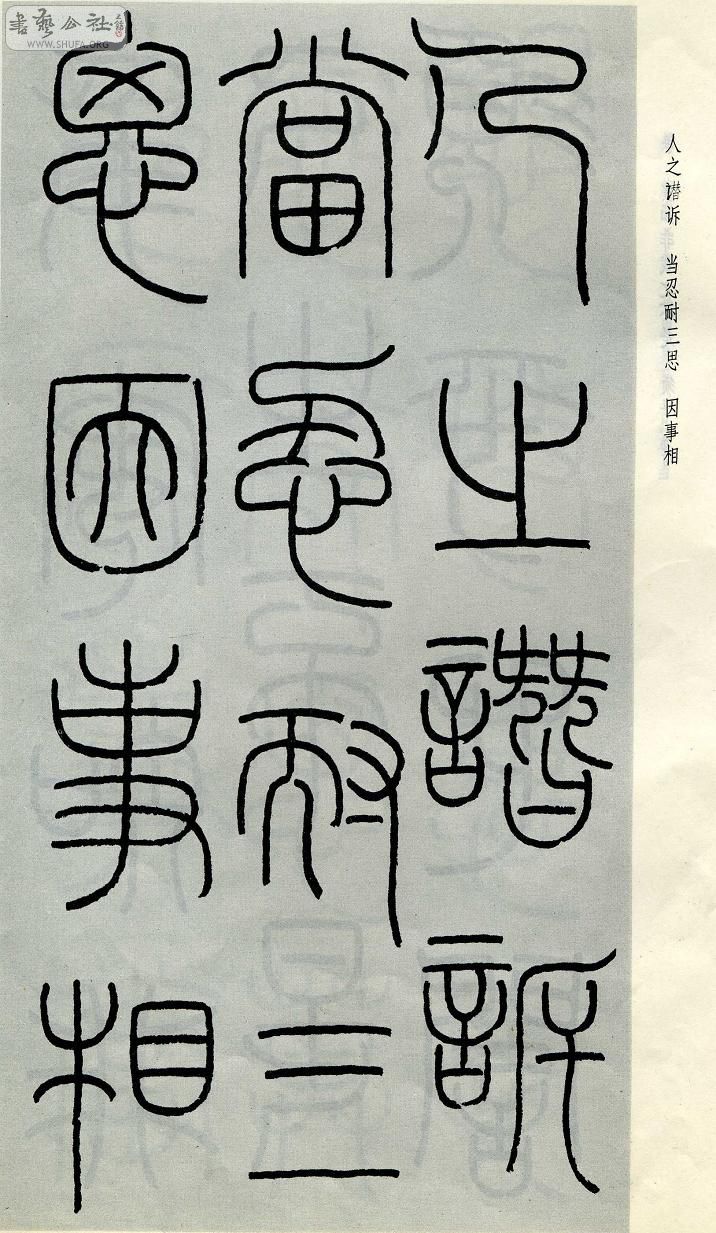 人之譖訴
當忍耐三
思因事相
人之谮诉 当忍耐三思 因事相
書藝公社
WWW.SHUFA.ORG